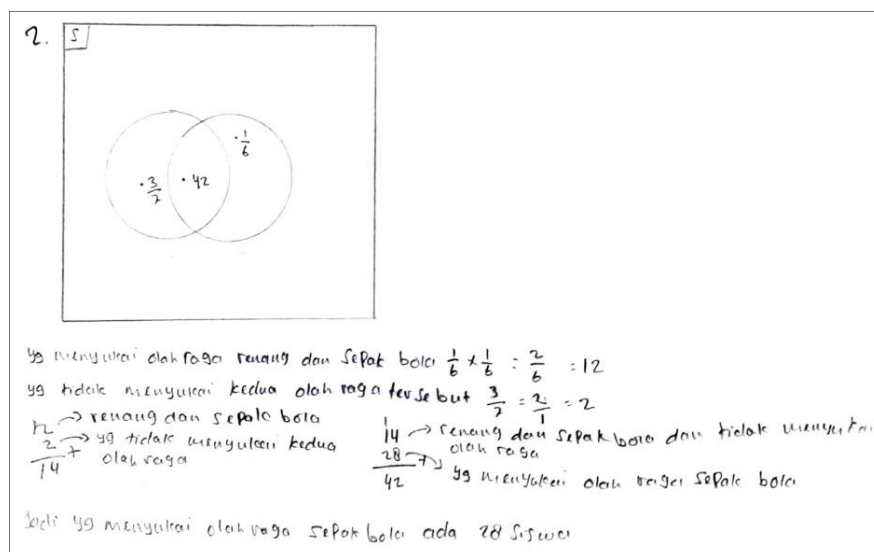 2.
S
· 1/6
· 3/7 · 42
yg menyukai olah raga renang dan sepak bola 1/6 × 1/6 = 2/6 = 12
yg tidak menyukai kedua olah raga tersebut 3/7 = 2/1 = 2
12 → renang dan sepak bola
2 → yg tidak menyukai kedua olah raga
+
14
14 → renang dan sepak bola dan tidak menyukai olah raga
28 → yg menyukai olah raga sepak bola
+
42
Jadi yg menyukai olah raga sepak bola ada 28 siswa